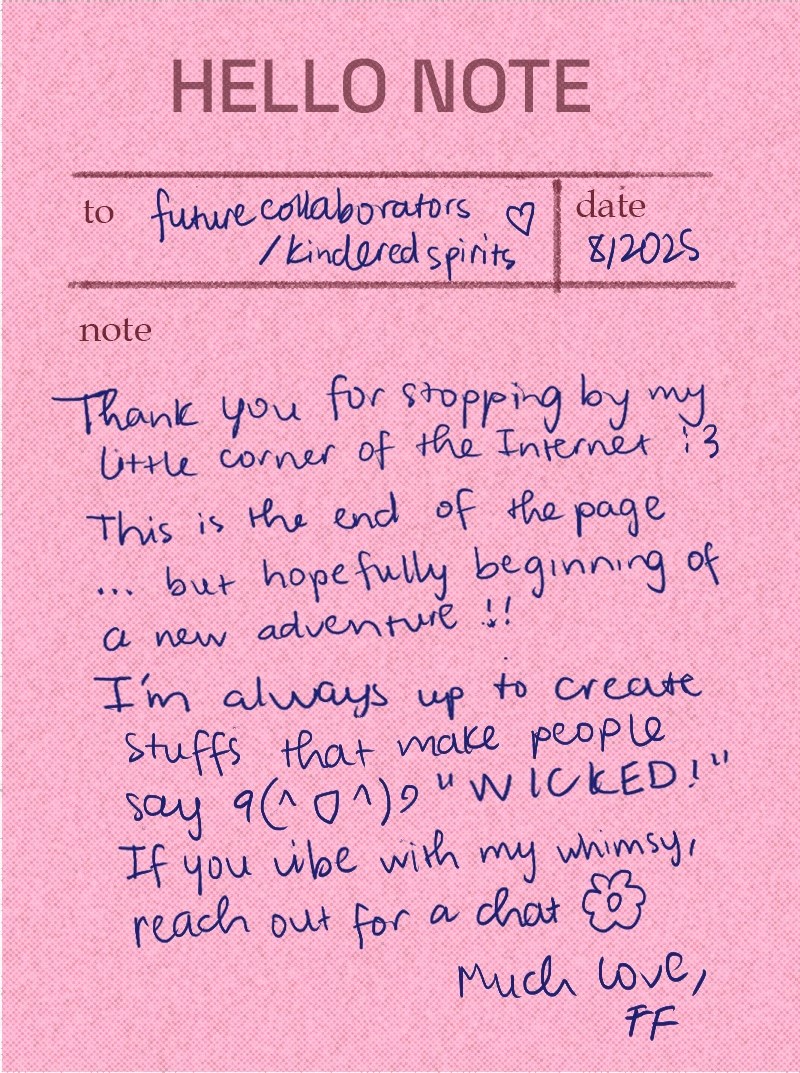 HELLO NOTE
to future collaborators ♡
/kindered spirits
date
8/2025
note
Thank you for stopping by my
little corner of the Internet :3
This is the end of the page
... but hopefully beginning of
a new adventure !!
I'm always up to create
stuffs that make people
say ٩(^ ▽ ^)و "WICKED!"
If you vibe with my whimsy,
reach out for a chat
Much love,
FF